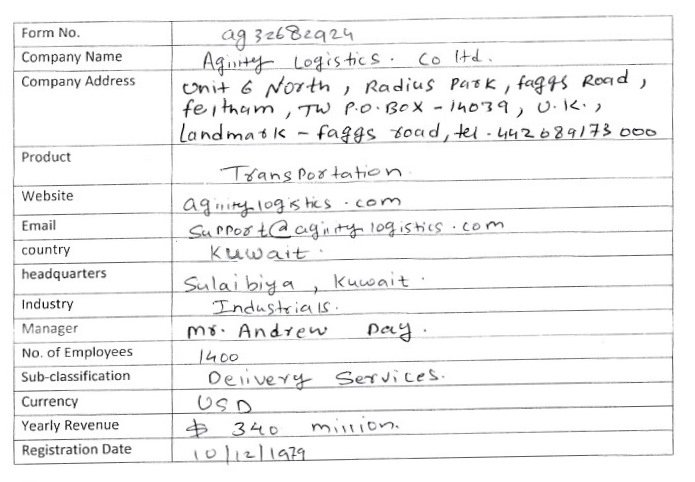 Form No. ag32682924
Company Name Agility Logistics. Co ltd.
Company Address Unit 6 North, Radius Park, faggs Road,
feltham, TW P.O.BOX - 14039, U.K.,
Landmark - faggs road, tel - 442089173000
Product Transportation.
Website agilitylogistics.com
Email Support@agilitylogistics.com
country Kuwait.
headquarters Sulaibiya, Kuwait.
Industry Industrials.
Manager Mr. Andrew Day.
No. of Employees 1400
Sub-classification Delivery Services.
Currency USD
Yearly Revenue $ 340 million.
Registration Date 10/12/1979